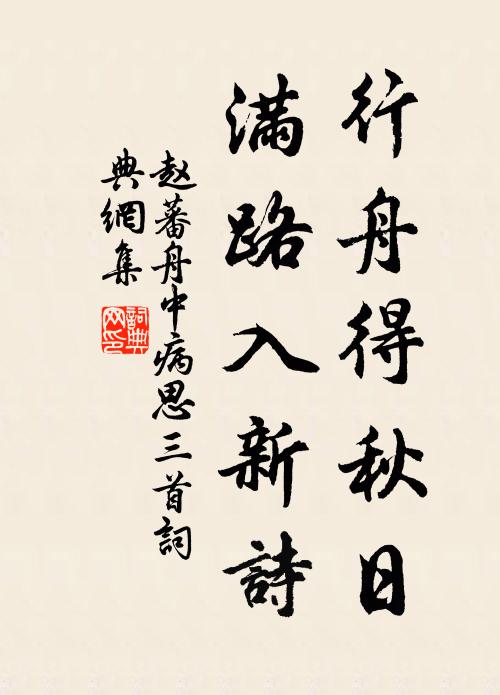 行舟得秋日
滿路入新詩
赵蕃舟中病思三首詞
典網集
詞典网印